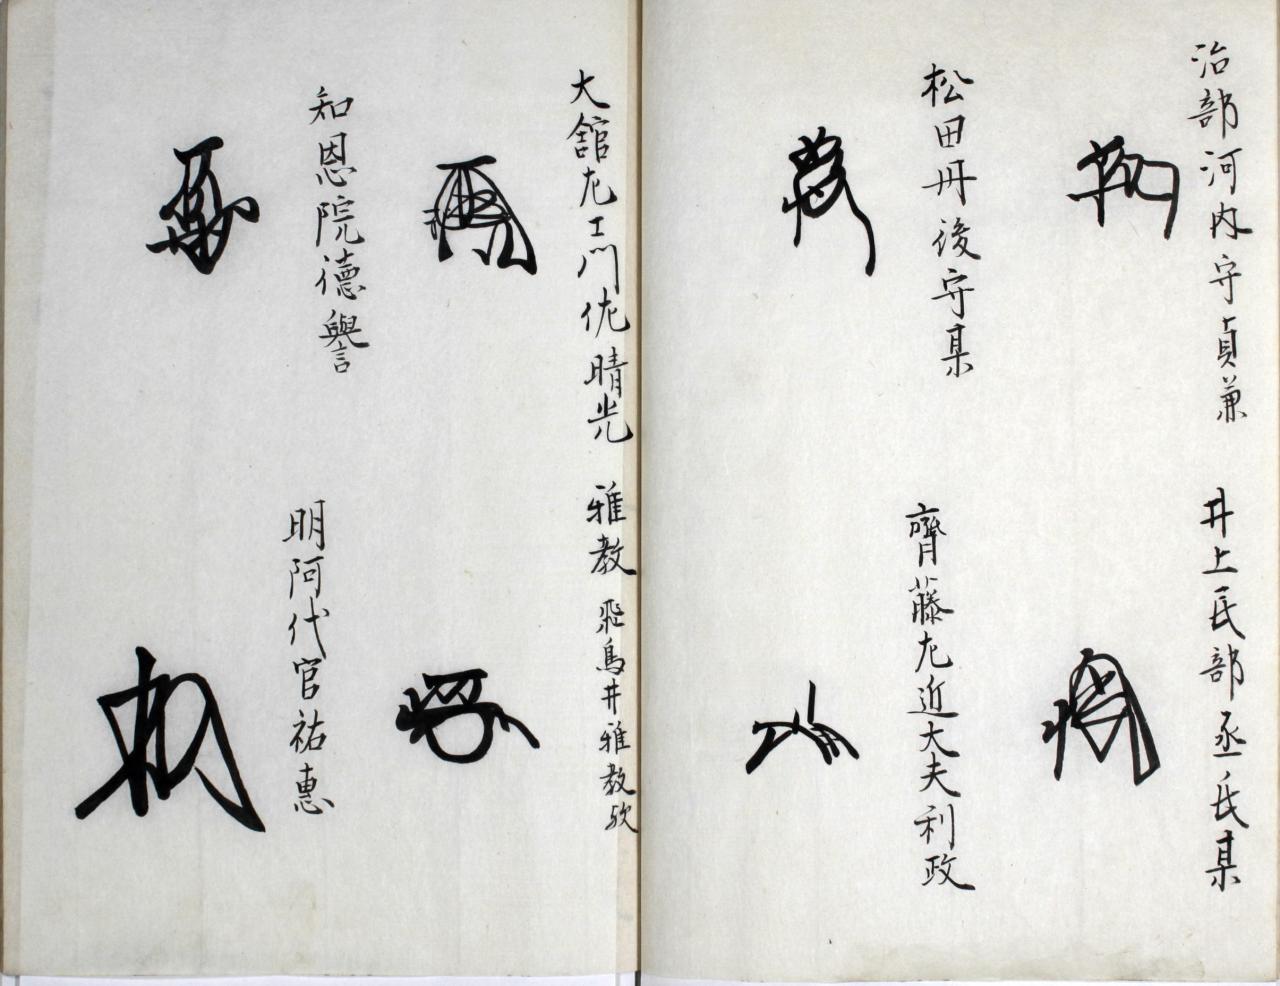 治部河内守貞兼
井上民部丞氏某
松田丹後守某
齊藤左近大夫利政
大舘左エ門佐晴光
雅教 飛鳥井雅教歟
知恩院德譽
明阿代官祐惠